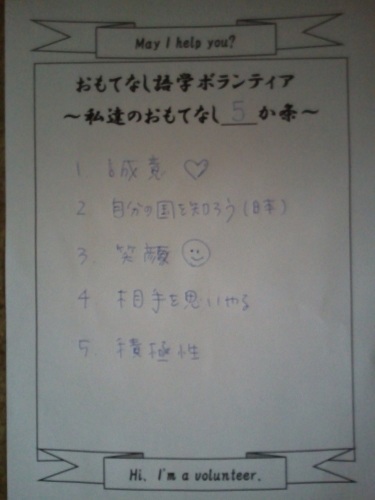 May I help you?
おもてなし語学ボランティア
～私達のおもてなし 5 か条～
1. 誠意 ♡
2 自分の国を知ろう(日本)
3. 笑顔 ☺
4. 相手を思いやる
5 積極性
Hi, I'm a volunteer.